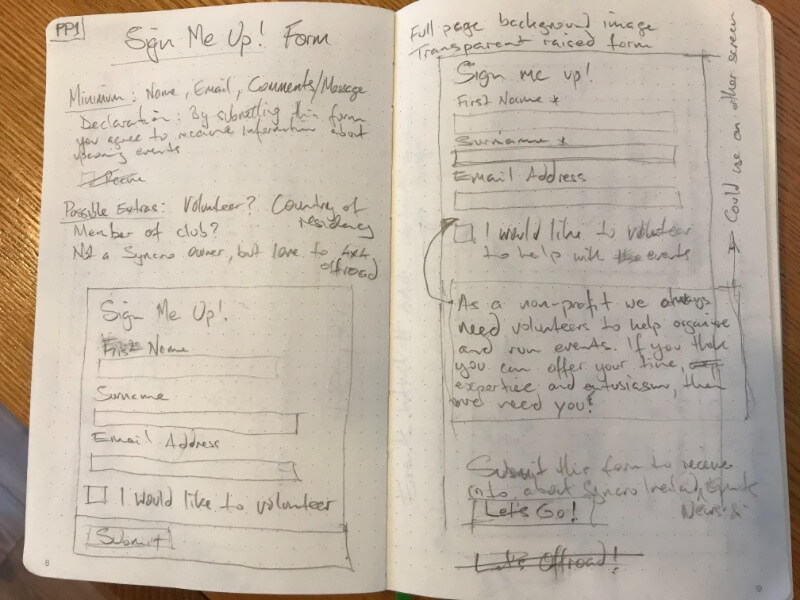 PP1
Sign Me Up! Form
Minimum: Name, Email, Comments/Message
Declaration: By submitting this form
you agree to receive information about
upcoming events
Possible Extras: Volunteer? Country of
residency
Member of club?
Not a Syncro owner, but love to 4x4
offroad
Sign Me Up!
First Name
Surname
Email Address
I would like to volunteer
Submit
8
Full page background image
Transparent raised form
Sign me up!
First Name *
Surname *
Email Address
I would like to volunteer
to help with the events
As a non-profit we always
need volunteers to help organise
and run events. If you think
you can offer your time,
expertise and entusiasm, then
we need you!
Could use on other screen
Submit this form to receive
info about Syncro Ireland, Events
News &
Let's Go!
Let's Offroad!
9